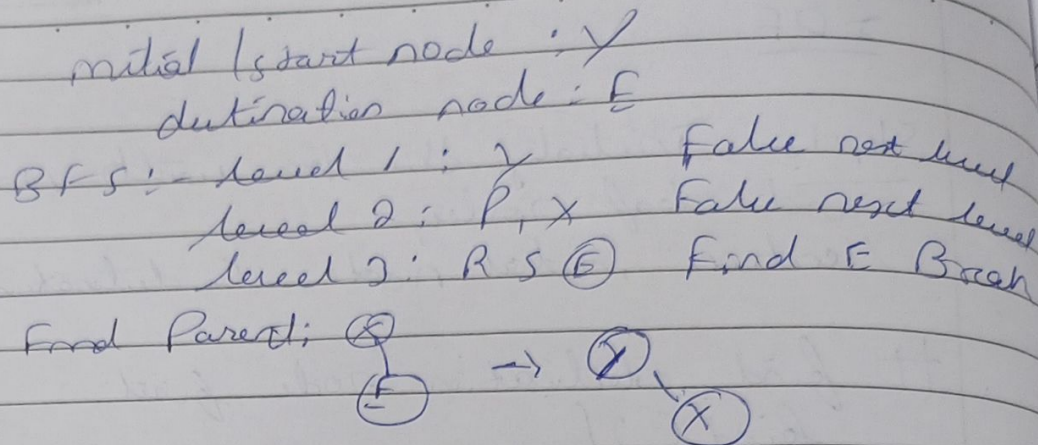 Initial / start node : Y
destination node : E
BFS :- Level 1 : Y False next level
level 2 : P, X False next level
level 3 : R S E Find E Break
Find Parent : X
E → Y
X